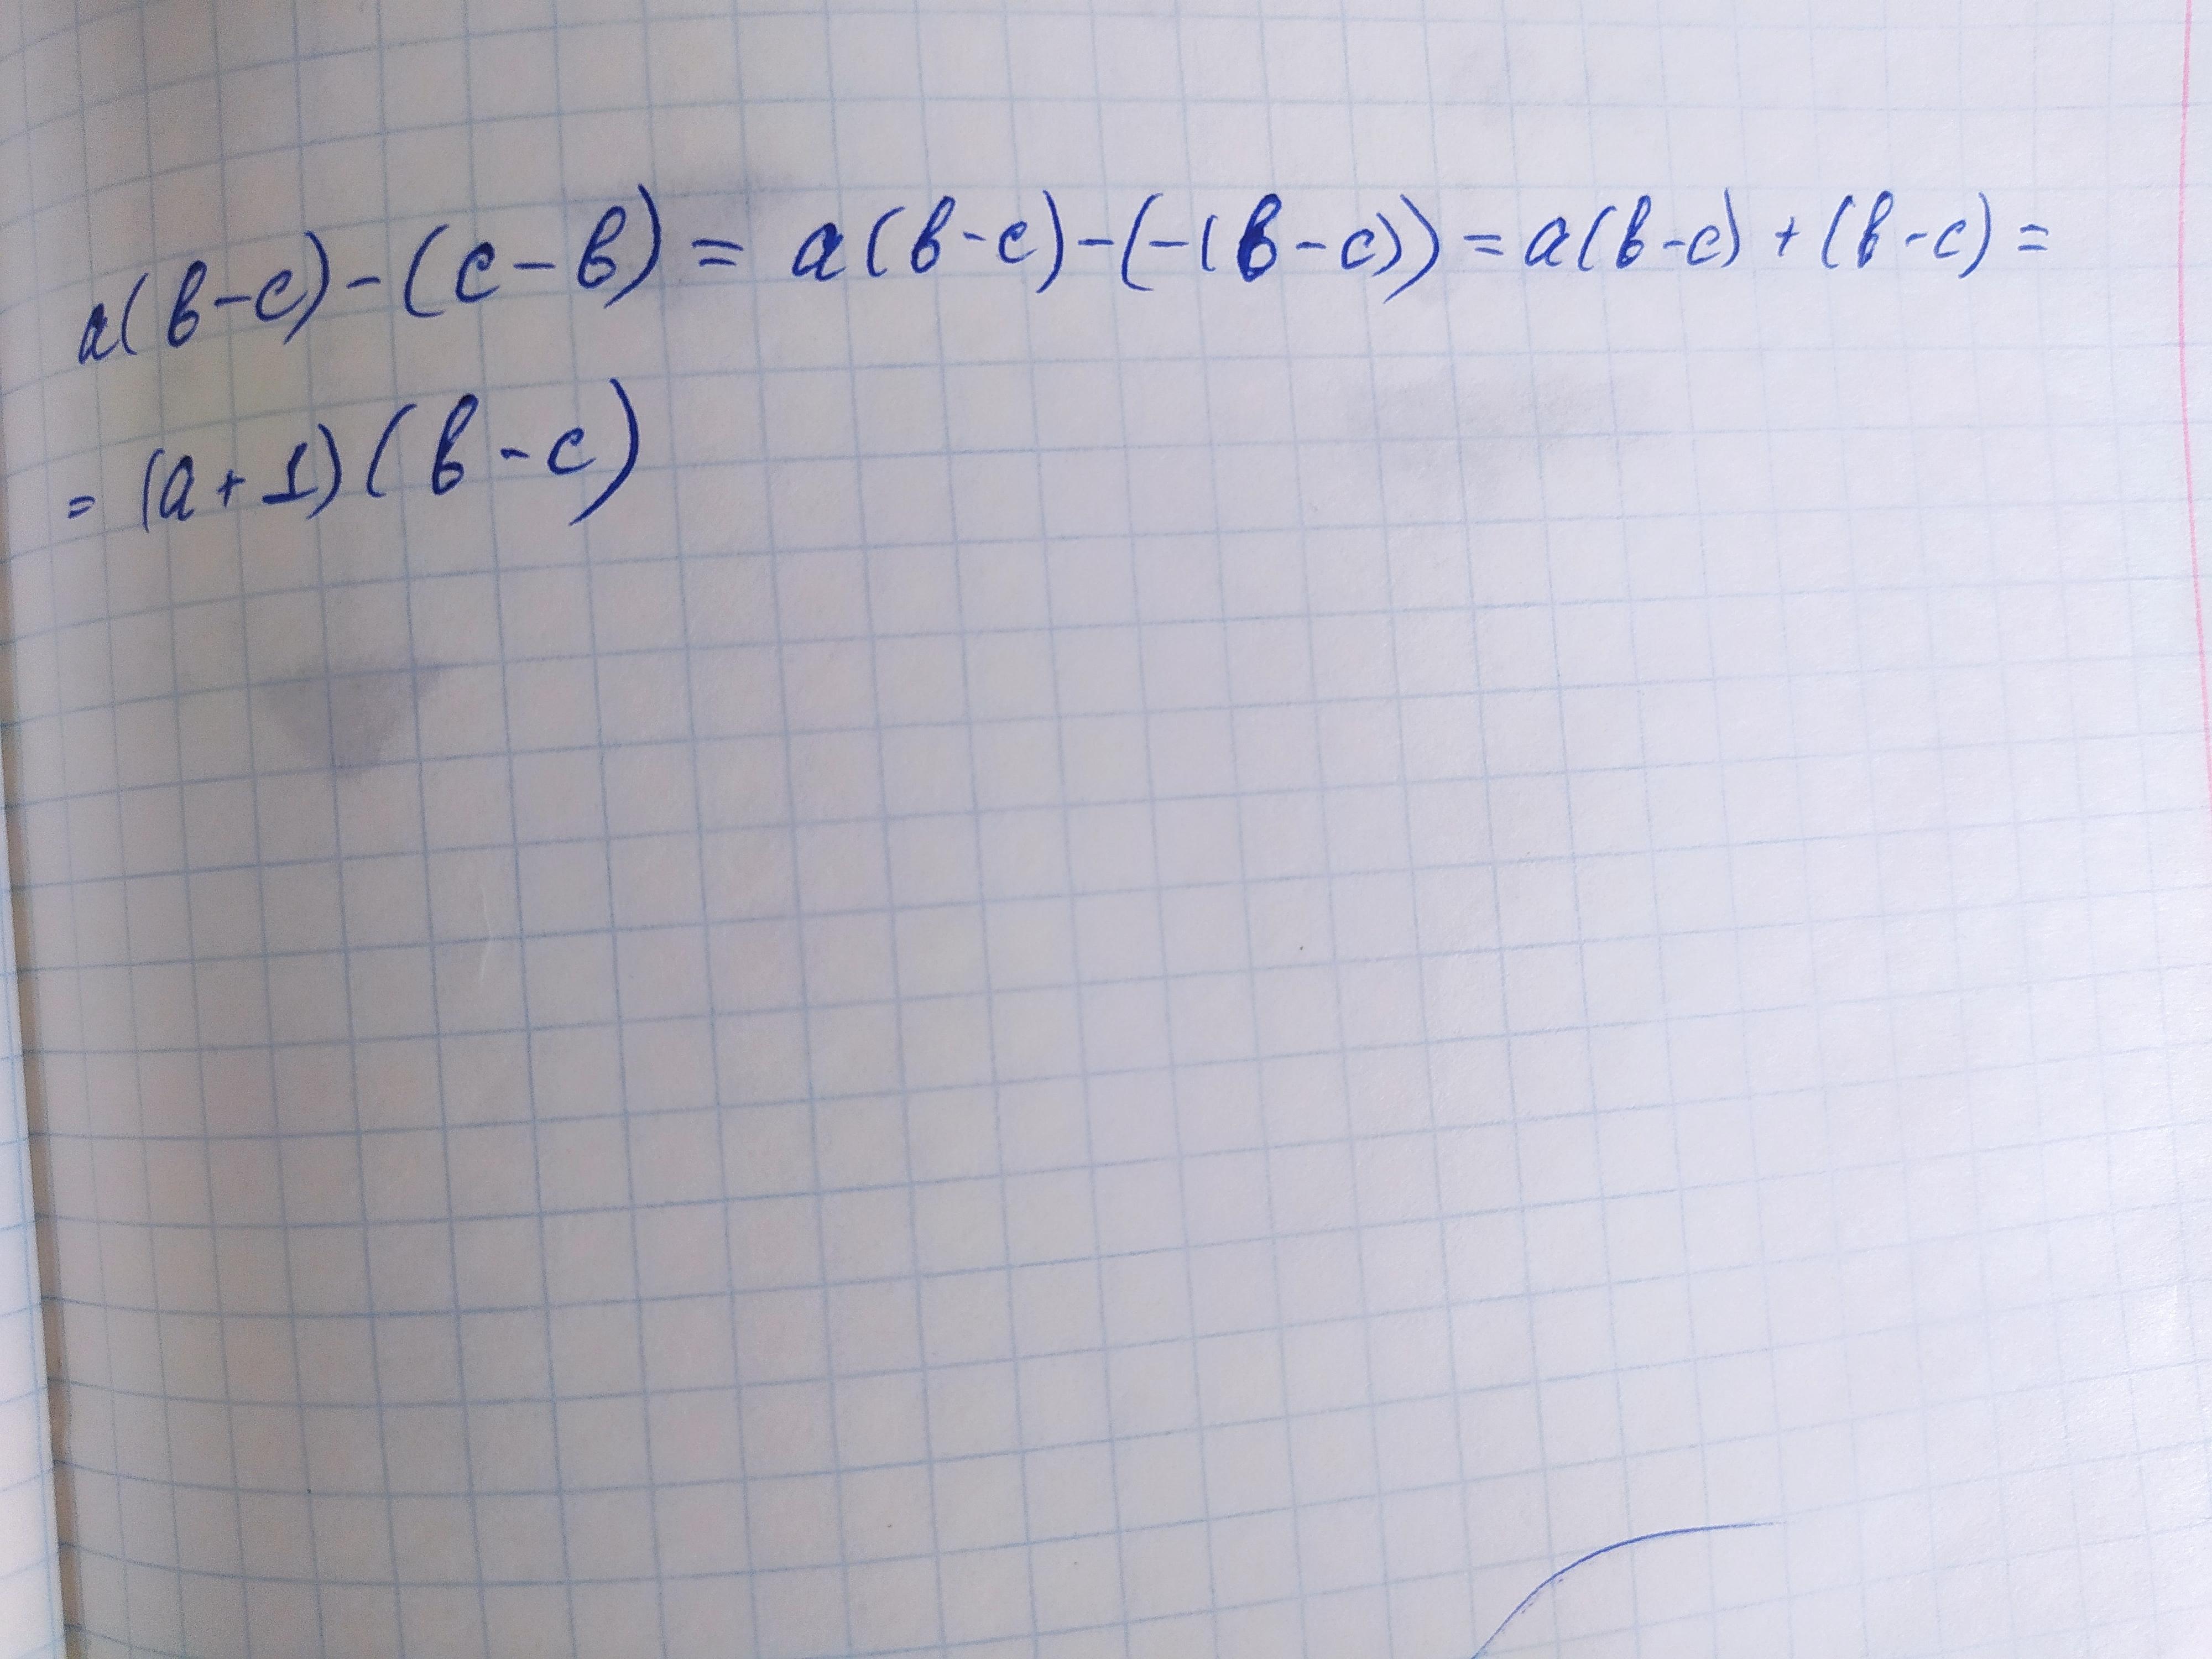 a(b-c)-(c-b) = a(b-c)-(-(b-c)) = a(b-c)+(b-c) =
= (a+1)(b-c)